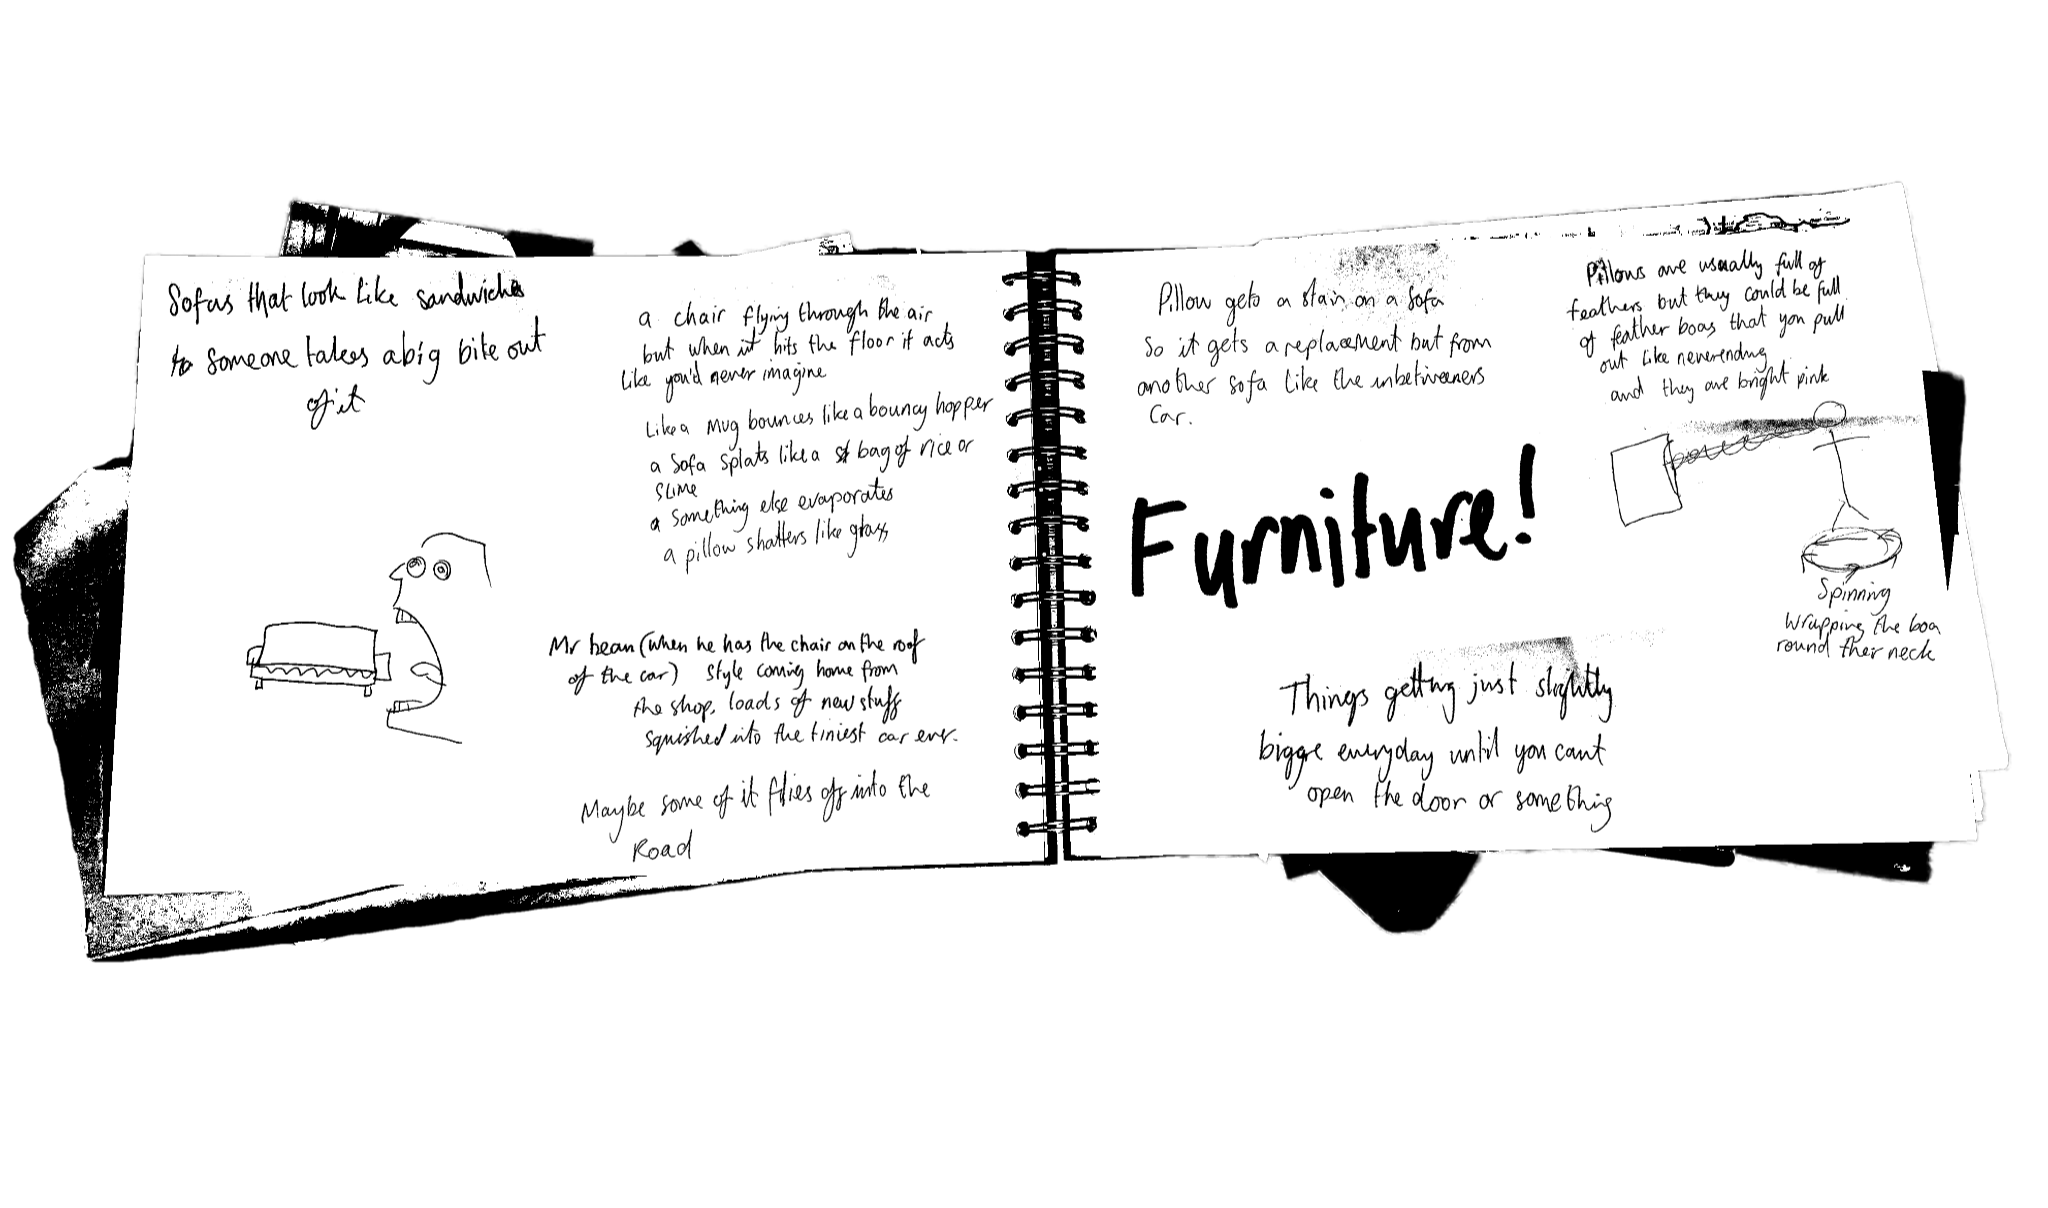 Sofas that look like sandwiches
so someone takes a big bite out
of it
a chair flying through the air
but when it hits the floor it acts
like you'd never imagine
Like a mug bounces like a bouncy hopper
a sofa splats like a bag of rice or
slime
a something else evaporates
a pillow shatters like glass
Mr bean (when he has the chair on the roof
of the car) style coming home from
the shop, loads of new stuff
squished into the tiniest car ever.
Maybe some of it flies off into the
Road
Pillow gets a stain on a sofa
So it gets a replacement but from
another sofa like the inbetweeners
Car.
Furniture!
Things getting just slightly
bigger everyday until you cant
open the door or something
Pillows are usually full of
feathers but they could be full
of feather boas that you pull
out like neverending
and they are bright pink
Spinning
Wrapping the boa
round ther neck